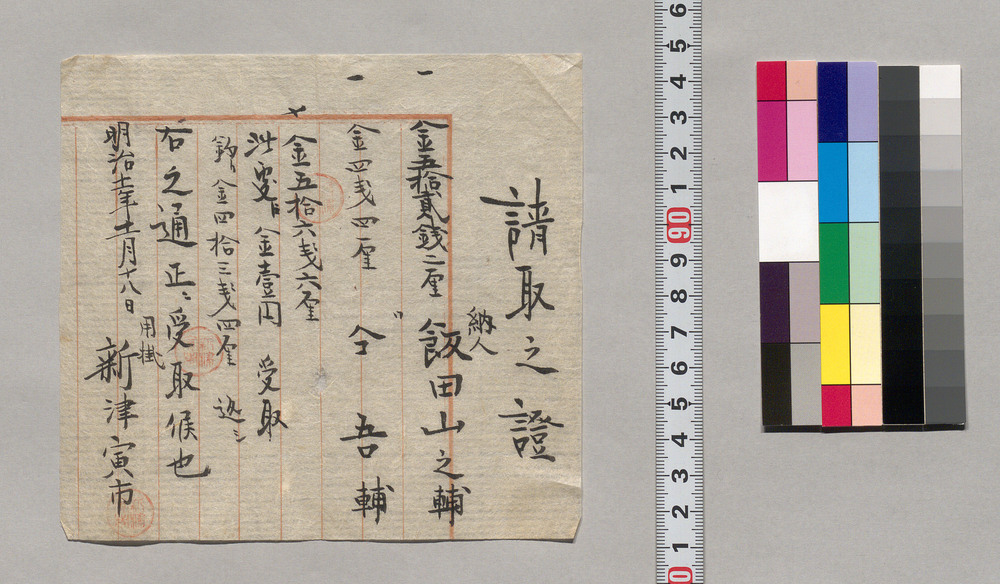 請取之證
納人
金五拾貳銭二厘 飯田山之輔
金四戋四厘 〃 仝 吾輔
金五拾六戋六厘
此 金壹円 受取
金四拾三戋四厘
右之通正ニ受取候也
明治十一年十一月十八日
用掛
新津寅市
6
5
4
3
2
1
90
9
8
7
6
5
4
3
2
1